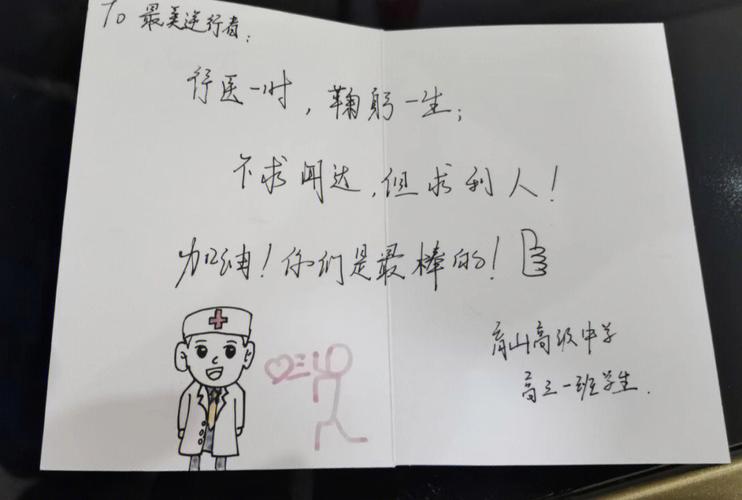 To 最美逆行者:
行医一时，鞠躬一生；
不求闻达，但求利人！
加油！你们是最棒的！
育山高级中学
高三一班学生.